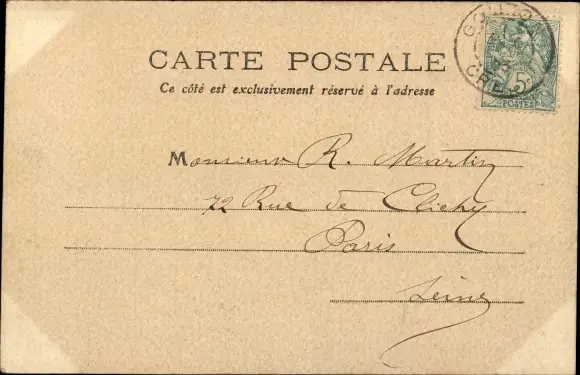 CARTE POSTALE
Ce côté est exclusivement réservé à l'adresse
Monsieur R. Martin
72 Rue de Clichy
Paris
Seine
5c
POSTES
GOUZON
CREUSE